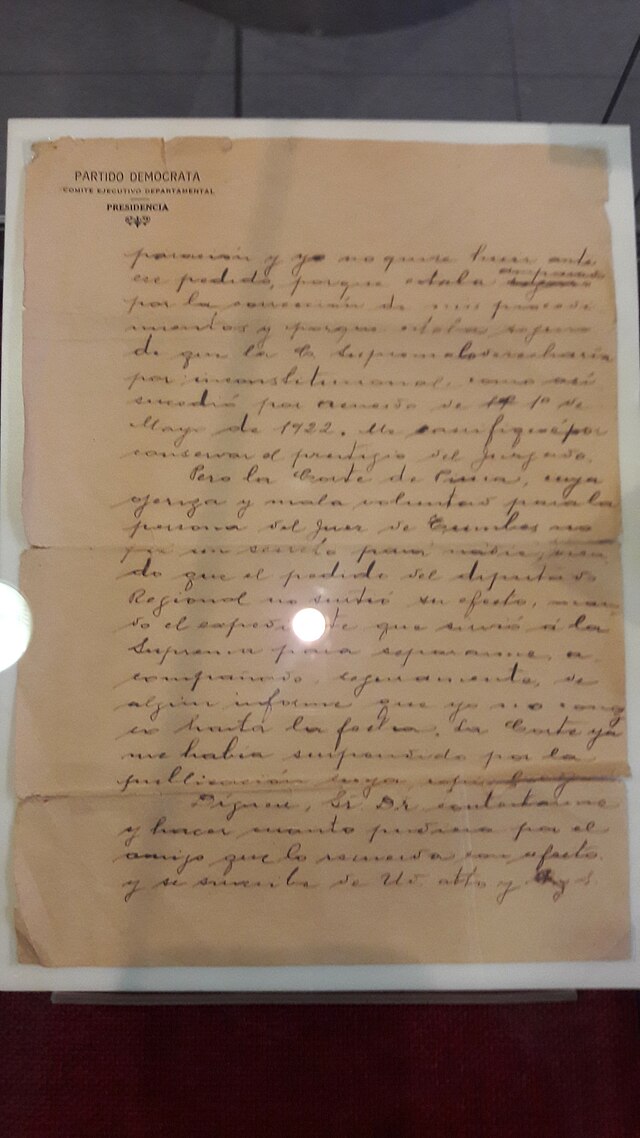 PARTIDO DEMOCRATA
COMITE EJECUTIVO DEPARTAMENTAL
PRESIDENCIA
y yo no quise hacer ante
ese pedido, porque estaba
por la corrección de mis procedi
mientos y porque estaba seguro
de que la C. Suprema lo desecharía
por inconstitucional, como así
sucedió por acuerdo de 1º de
Mayo de 1922. Me sacrifiqué por
conservar el prestigio del juzgado.
Pero la Corte de Piura, cuya
ojeriza y mala voluntad para la
persona del Juez de Tumbes no
fue un secreto para nadie, vien
do que el pedido del diputado
Regional no surtió su efecto, man
dó el expediente que sirvió á la
Suprema para separarme, a
compañado, seguramente, de
algún informe que yo no conoz
co hasta la fecha. La Corte ya
me había suspendido por la
publicación cuya
Dígnese, Sr. Dr. contestarme
y hacer cuanto pudiera por el
amigo que lo recuerda con afecto
y se suscribe de Ud. atto y